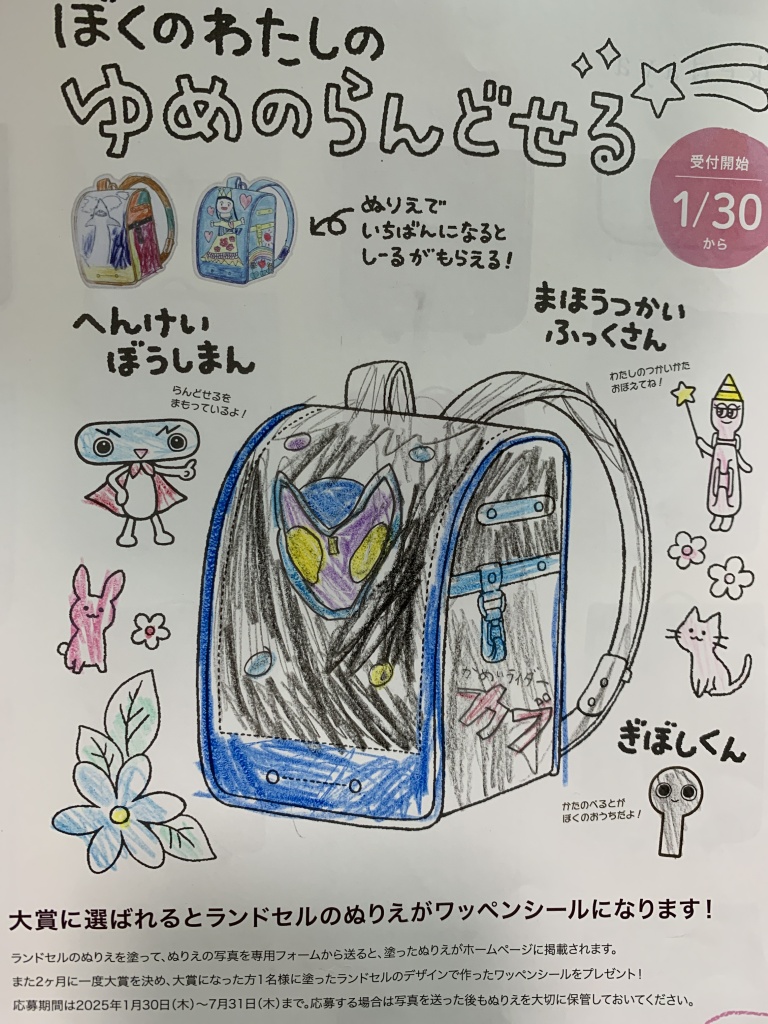 ぼくのわたしの
ゆめのらんどせる
受付開始
1/30
から
ぬりえで
いちばんになると
しーるがもらえる!
へんけい
ぼうしまん
らんどせるを
まもっているよ!
まほうつかい
ふっくさん
わたしのつかいかた
おぼえてね!
かめんライダー
ガヴ
ぎぼしくん
かたのべるとが
ぼくのおうちだよ!
大賞に選ばれるとランドセルのぬりえがワッペンシールになります!
ランドセルのぬりえを塗って、ぬりえの写真を専用フォームから送ると、塗ったぬりえがホームページに掲載されます。
また2ヶ月に一度大賞を決め、大賞になった方1名様に塗ったランドセルのデザインで作ったワッペンシールをプレゼント!
応募期間は2025年1月30日(木)〜7月31日(木)まで。応募する場合は写真を送った後もぬりえを大切に保管しておいてください。